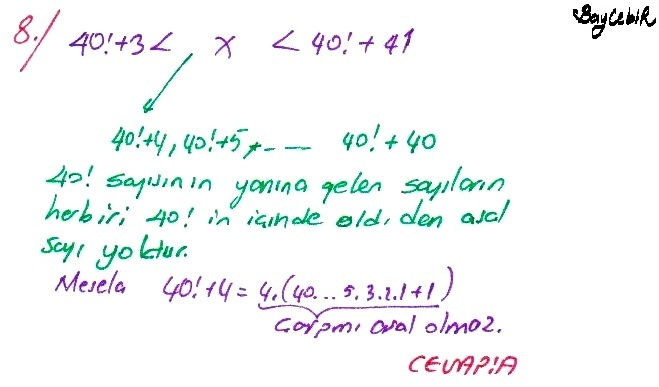 BayCebiR
8.) 40!+3 < x < 40!+41
40!+4, 40!+5, --- 40!+40
40! sayısının yanına gelen sayıların
herbiri 40! in içinde old. den asal
sayı yoktur.
Mesela 40!+4 = 4.(40...5.3.2.1+1)
Çarpımı asal olmaz.
CEVAP:A